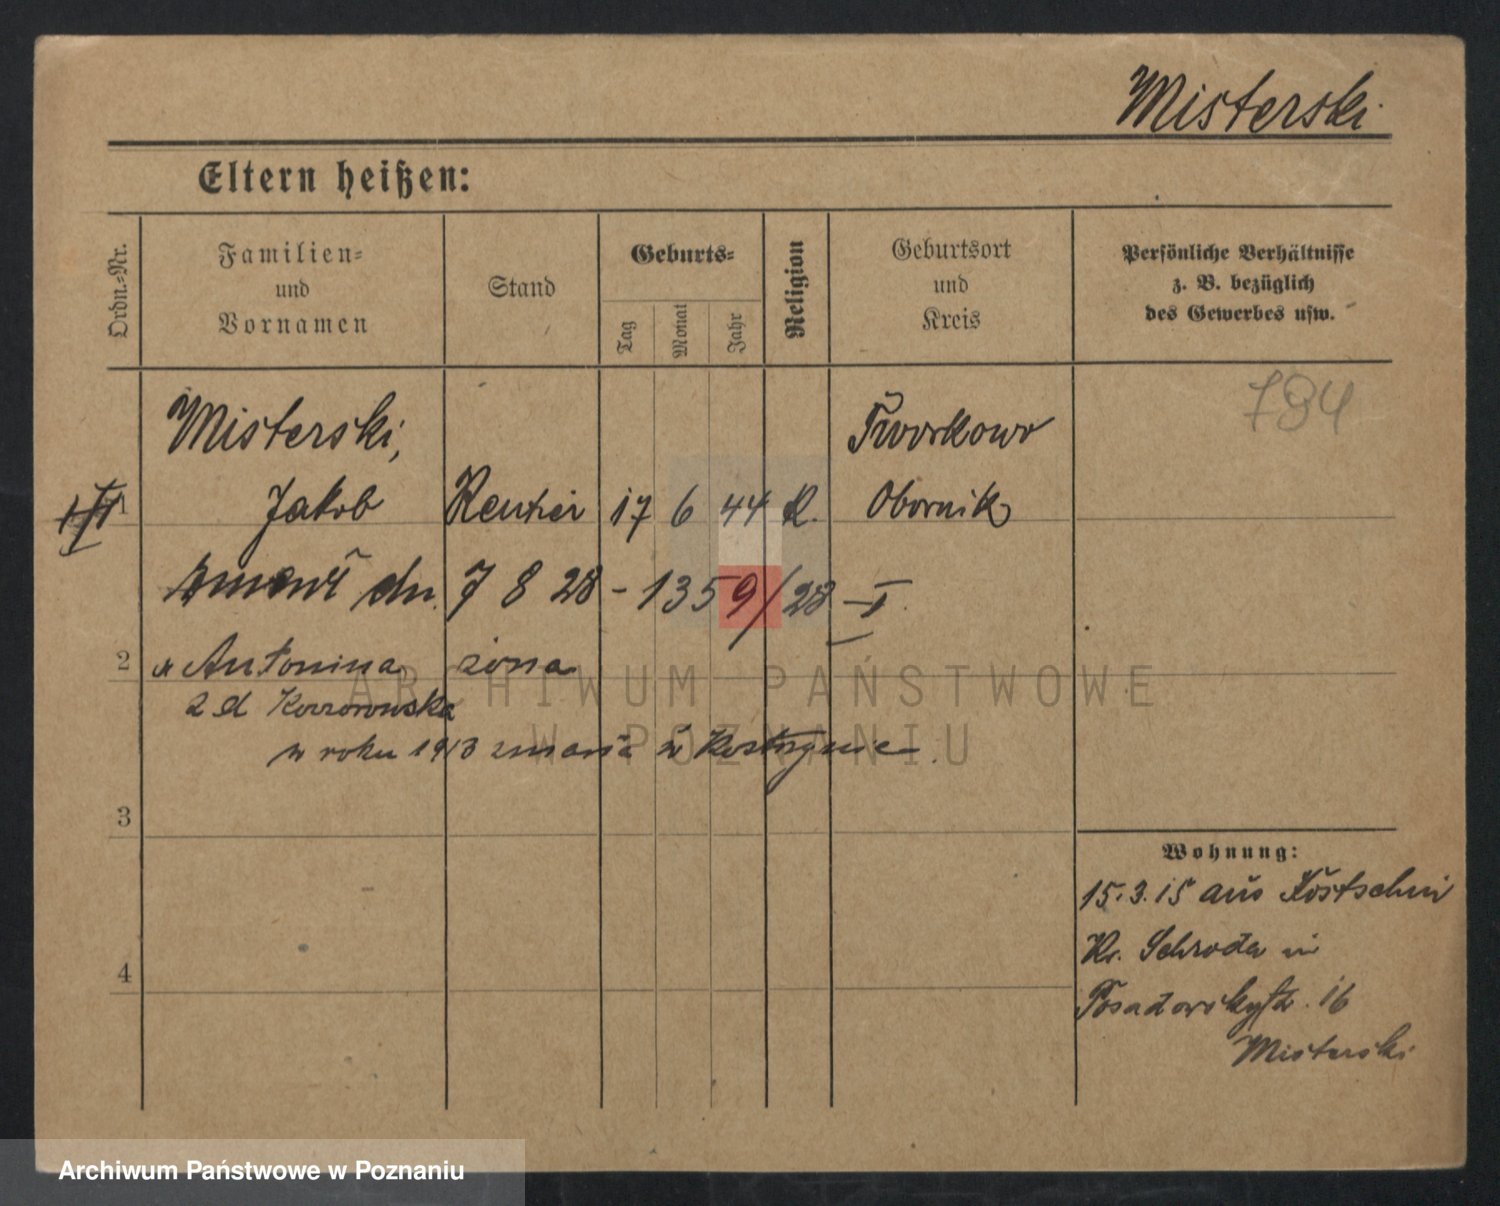 Misterski
Eltern heißen:
Ordn.-Nr.
Familien-
und
Vornamen
Stand
Geburts-
Tag
Monat
Jahr
Religion
Geburtsort
und
Kreis
Persönliche Verhältnisse
z. B. bezüglich
des Gewerbes usw.
784
Misterski, Tworkowo
1 Jakob Rentier 17 6 44 R. Obornik
zmarł dn. 7 8 28 - 1359/28 - I.
2 Antonina żona
z d
w roku 1913 zmarła w Kostrzynie.
3
4
Wohnung:
15.3.15 aus Kostschin
Kr. Schroda in
Posadowskystr. 16
Misterski
ARCHIWUM PAŃSTWOWE
W POZNANIU
Archiwum Państwowe w Poznaniu